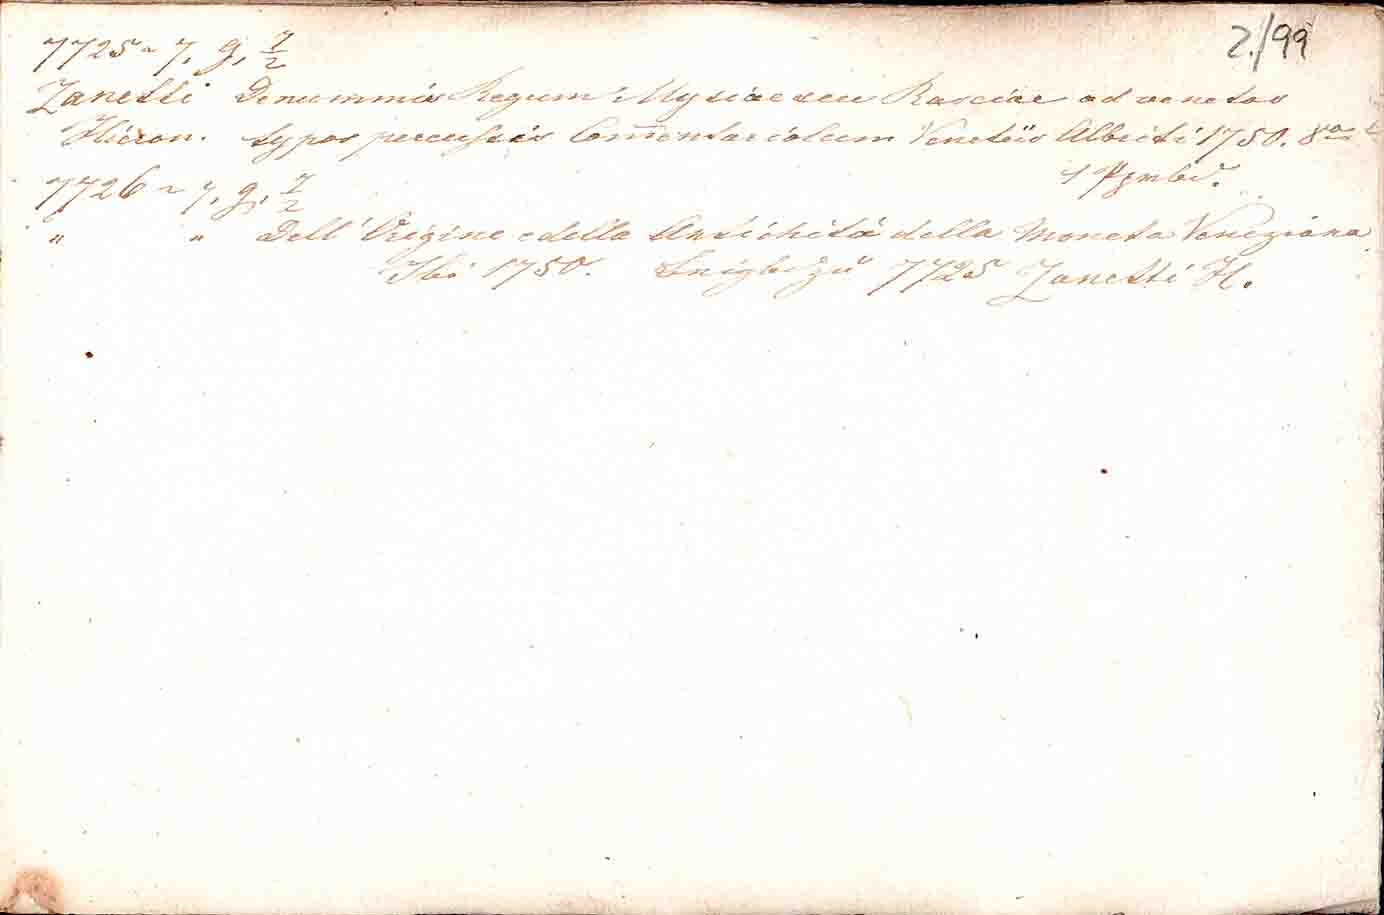 Z./99
7725 ~ 7, g, 7/2
Zanetti De nummis Regum Mysiae seu Rasciae ad venetos
Hieron. typos percussis Com̄entariolum Venetiis Albriti 1750. 8vo
1 Ppmbd.
7726 ~ 7, g, 7/2
" " Dell' Origine e della Antichitá della Moneta Veneziana
Ibi 1750. zu 7725 Zanetti H.